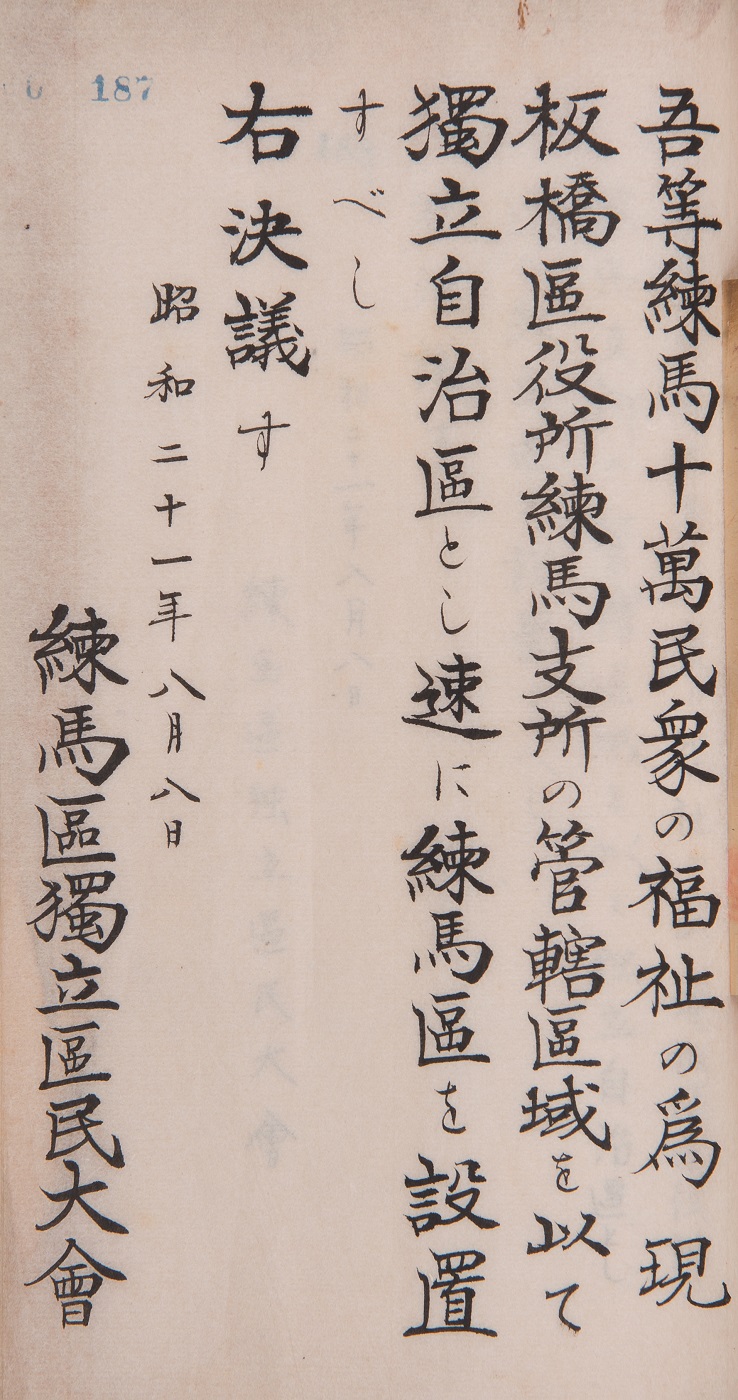 吾等練馬十萬民衆の福祉の爲現
板橋區役所練馬支所の管轄區域を以て
獨立自治區とし速に練馬區を設置
すべし
右決議す
昭和二十一年八月八日
練馬區獨立區民大會
187